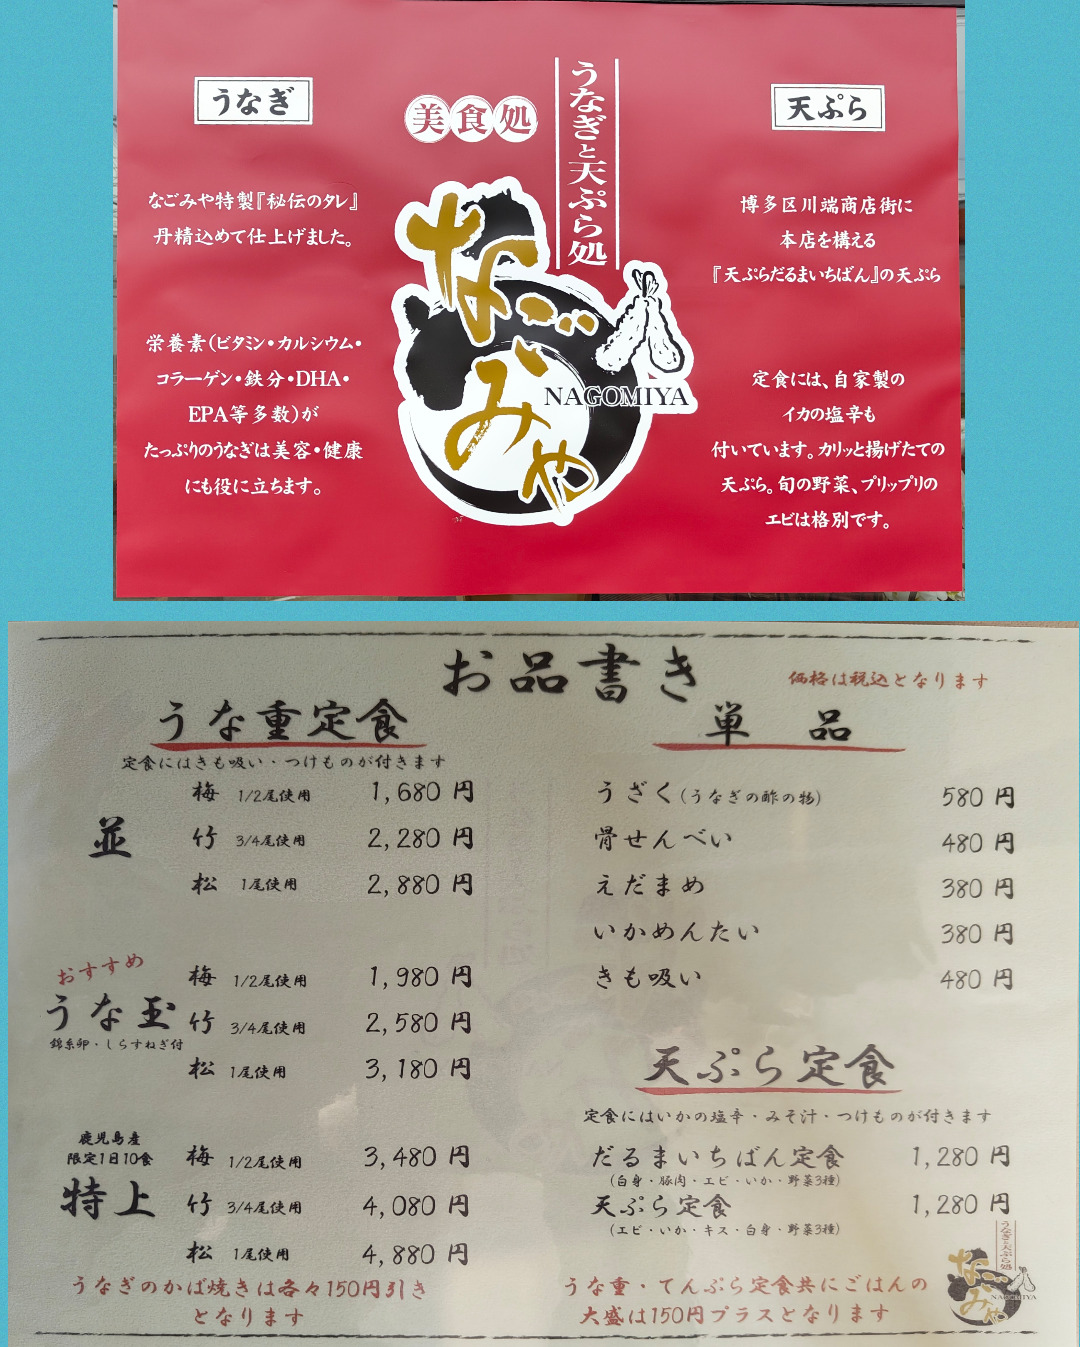 うなぎ
なごみや特製『秘伝のタレ』
丹精込めて仕上げました。
栄養素(ビタミン・カルシウム・
コラーゲン・鉄分・DHA・
EPA等多数)が
たっぷりのうなぎは美容・健康
にも役に立ちます。
美食処
うなぎと天ぷら処
なごみや
NAGOMIYA
天ぷら
博多区川端商店街に
本店を構える
『天ぷらだるまいちばん』の天ぷら
定食には、自家製の
イカの塩辛も
付いています。カリッと揚げたての
天ぷら。旬の野菜、プリップリの
エビは格別です。
お品書き
価格は税込となります
うな重定食
定食にはきも吸い・つけものが付きます
並
梅 1/2尾使用 1,680 円
竹 3/4尾使用 2,280 円
松 1尾使用 2,880 円
おすすめ
うな玉
錦糸卵・しらすねぎ付
梅 1/2尾使用 1,980 円
竹 3/4尾使用 2,580 円
松 1尾使用 3,180 円
鹿児島産
限定1日10食
特上
梅 1/2尾使用 3,480 円
竹 3/4尾使用 4,080 円
松 1尾使用 4,880 円
うなぎのかば焼きは各々150円引き
となります
単品
うざく(うなぎの酢の物) 580 円
骨せんべい 480 円
えだまめ 380 円
いかめんたい 380 円
きも吸い 480 円
天ぷら定食
定食にはいかの塩辛・みそ汁・つけものが付きます
だるまいちばん定食 1,280 円
(白身・豚肉・エビ・いか・野菜3種)
天ぷら定食 1,280 円
(エビ・いか・キス・白身・野菜3種)
うな重・てんぷら定食共にごはんの
大盛は150円プラスとなります
うなぎと天ぷら処
なごみや
NAGOMIYA